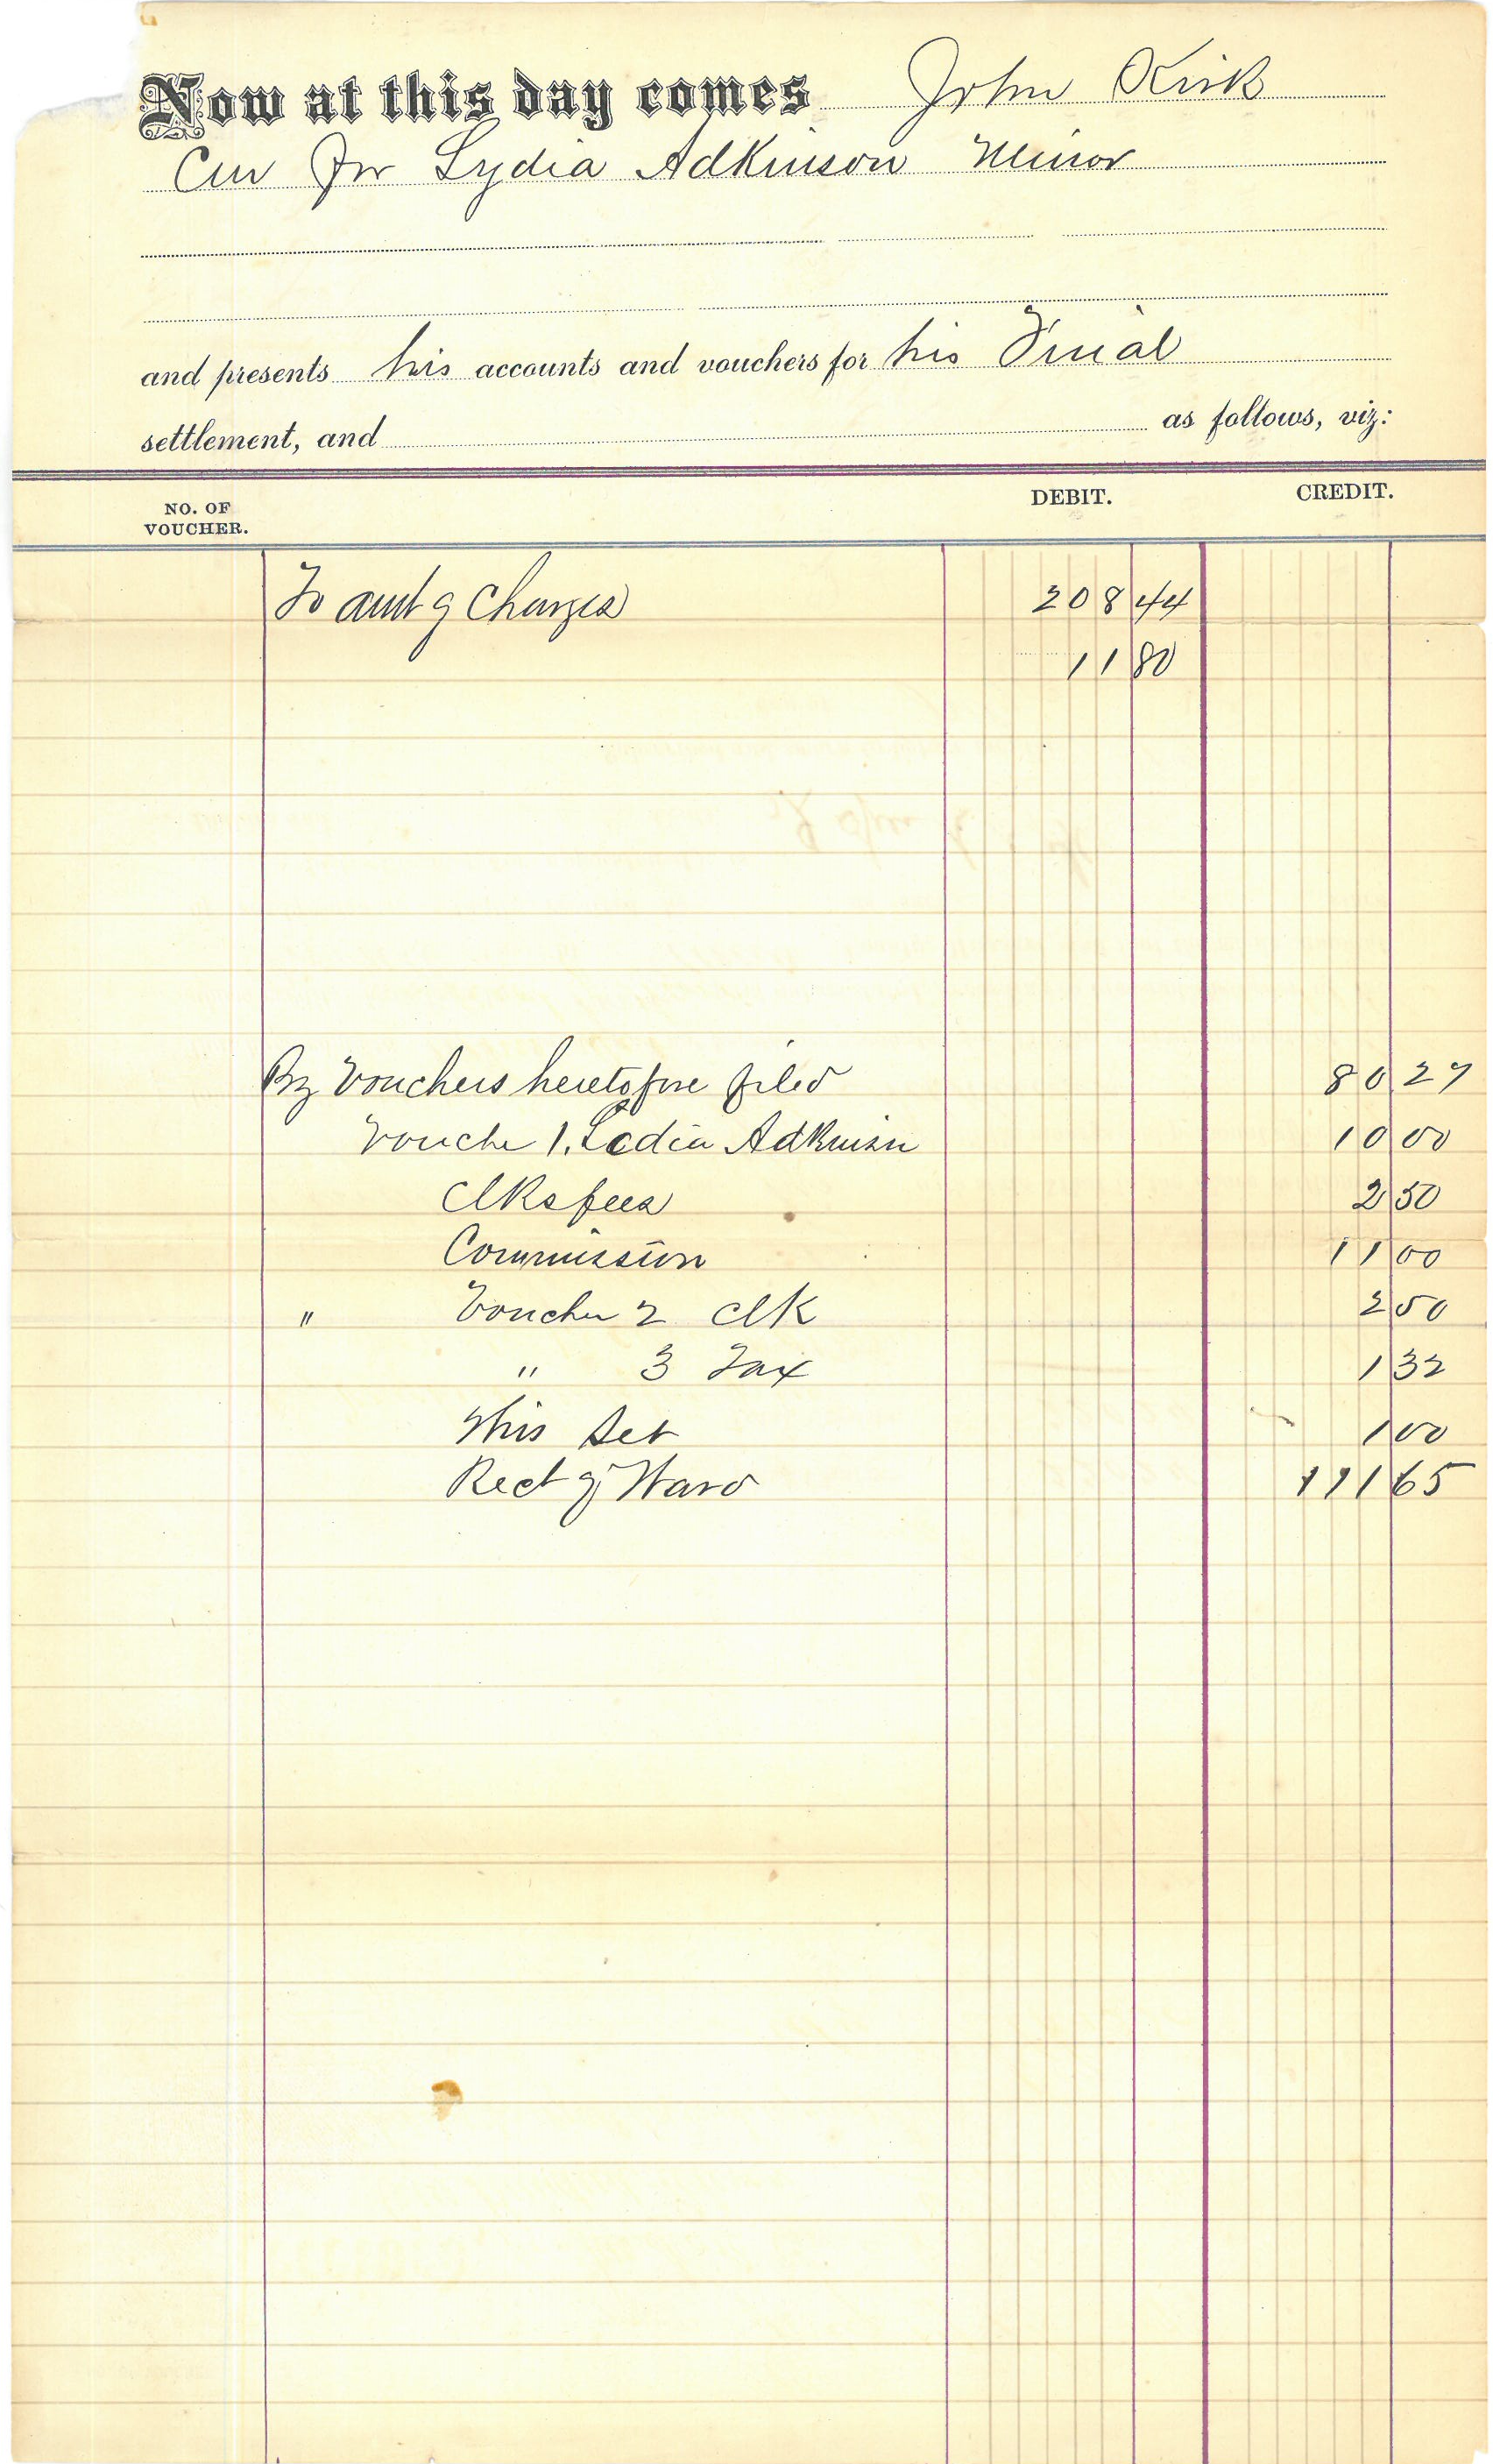 Now at this day comes John Kirk
Cur for Lydia Adkinson Minor
and presents his accounts and vouchers for his Final
settlement, and as follows, viz:
NO. OF VOUCHER. DEBIT. CREDIT.
To amt of Charges 208 44
11 80
By Vouchers heretofore filed 80 27
Vouche 1. Lydia Adkinson 10 00
Clks fees 2 50
Commission 11 00
" Voucher 2 Clk 2 50
" 3 Tax 1 32
This Set 1 00
Rect of Ward 111 65